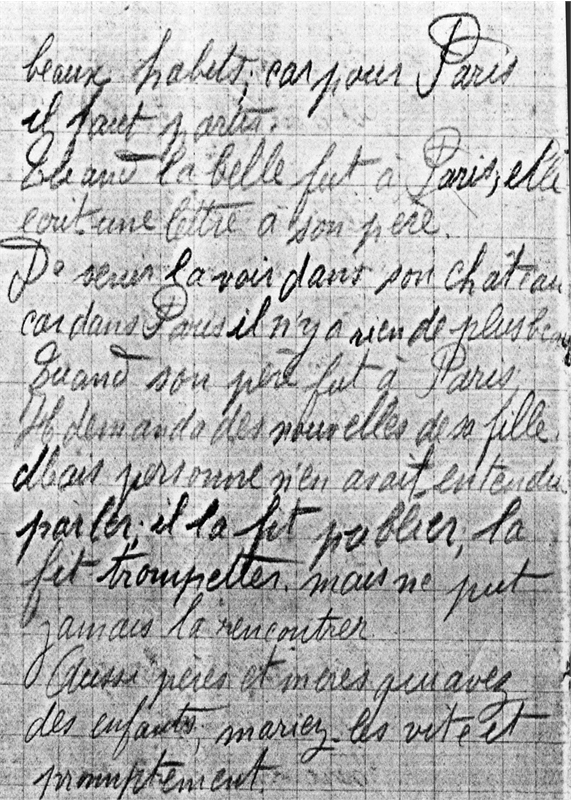 beaux habits; car pour Paris
il faut partir.
Quand la belle fut à Paris, elle
ecrit une lettre à son père.
De venir la voir dans son château
car dans Paris il n'y a rien de plus beau
Quand son père fut à Paris,
Il demanda des nouvelles de sa fille.
Mais personne n'en avait entendu
parler; il la fit publier, la
fit trompetter. mais ne put
jamais la rencontrer
Aussi pères et mères qui avez
des enfants, mariez-les vite et
promptement.